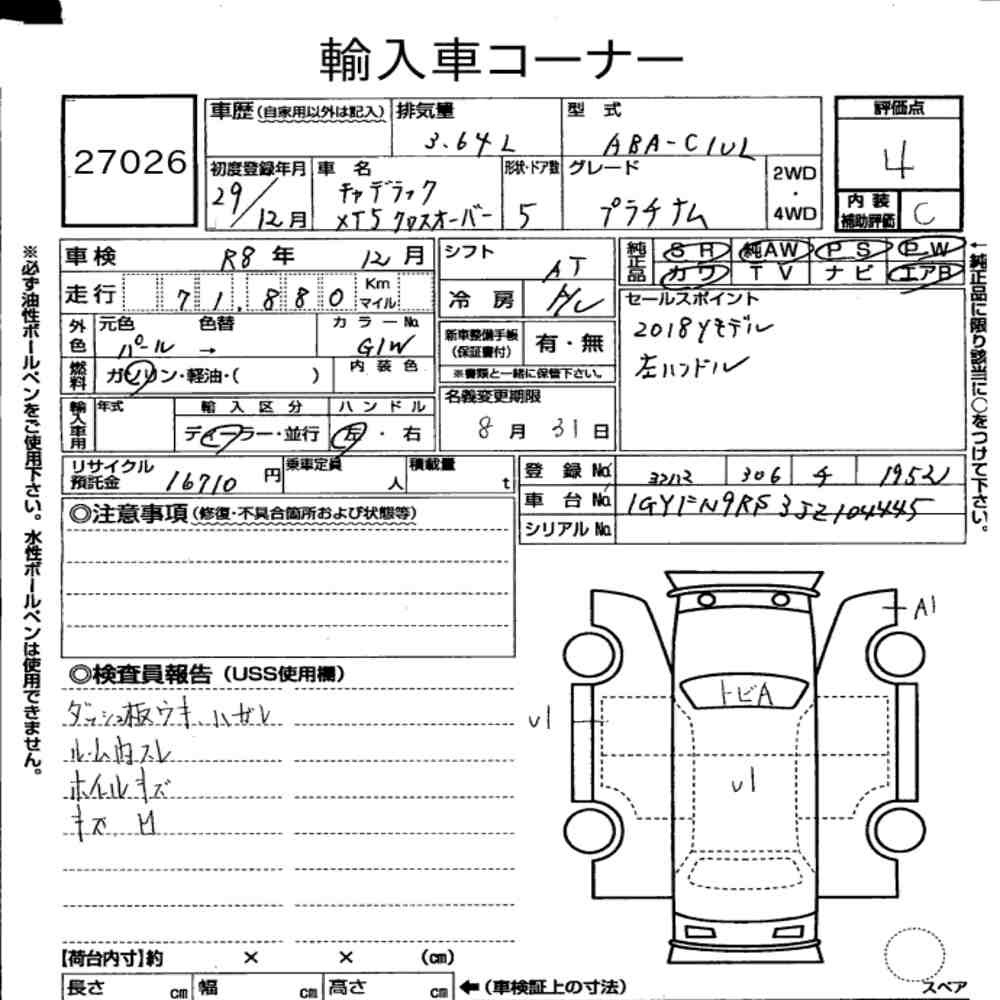 輸入車コーナー
27026
車歴(自家用以外は記入)
排気量
3.64L
型 式
ABA-C1UL
評価点
4
初度登録年月
29/12月
車 名
キャデラック
XT5 クロスオーバー
形状・ドア数
5
グレード
プラチナム
2WD
・
4WD
内 装
補助評価
C
※必ず油性ボールペンをご使用下さい。水性ボールペンは使用できません。
車検 R8 年 12 月
走行 71,880 Km
マイル
外色
元色 色替 カラーNo.
パール → G1W
燃料
ガソリン・軽油・( )
内 装 色
輸入車用
年式
輸 入 区 分
ハ ン ド ル
ディーラー・並行
左 ・ 右
シフト
AT
冷 房
A/C
新車整備手帳
(保証書付)
有・無
※書類と一緒に保管下さい。
名義変更期限
8 月 31 日
純正品
SR 純AW PS PW
カワ TV ナビ エアB
セールスポイント
2018yモデル
左ハンドル
←純正品に限り該当に○をつけて下さい。
リサイクル
預託金
16710 円
乗車定員
人
積載量
t
登 録 No. 306 チ 1952
車 台 No. 1GYFN9RS3JZ104445
シリアル No.
◎注意事項(修復・不具合箇所および状態等)
◎検査員報告(USS使用欄)
ダッシュ板ウキ、ハガレ
ルーム内スレ
ホイールキズ
キズ 凹
A1
トビA
U1
U1
【荷台内寸】約 × × (cm)
長さ cm 幅 cm 高さ cm ←(車検証上の寸法)
スペア